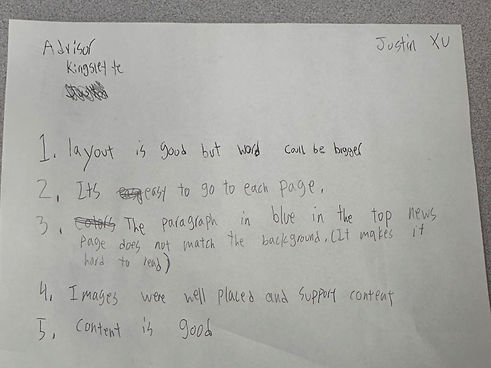 Advisor
Justin XU
Kingsley te
1. layout is good but word coull be bigger
2. Its easy to go to each page.
3. colors The paragraph in blue in the top news
page does not match the background. (It makes it
hard to read)
4. Images were well placed and support content
5. content is good